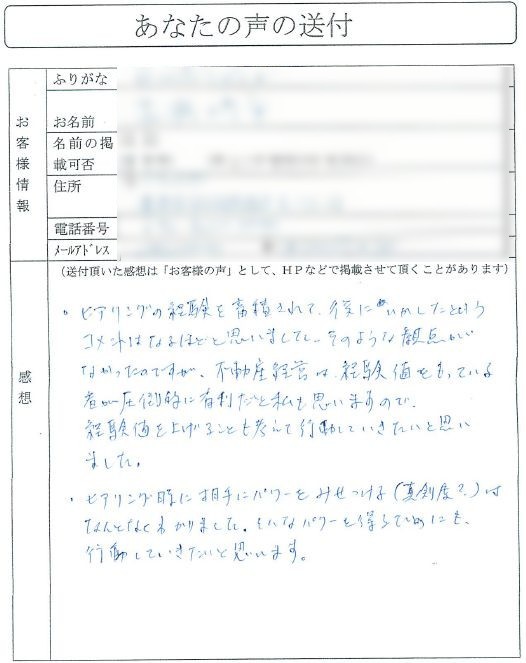 あなたの声の送付
お客様情報
ふりがな
お名前
名前の掲
載可否
住所
電話番号
ﾒｰﾙｱﾄﾞﾚｽ
(送付頂いた感想は「お客様の声」として、HPなどで掲載させて頂くことがあります)
感想
・ヒアリングの経験を蓄積されて、後に いかしたという
コメントはなるほどと思いました。そのような観点が
なかったのですが、不動産経営は、経験値をもっている
者が圧倒的に有利だと私も思いますので、
経験値を上げることも考えて行動していきたいと思い
ました。
・ヒアリング時に相手にパワーをみせつける(真剣度?)は
なんとなくわかりました。そんなパワーを得るためにも、
行動していきたいと思います。